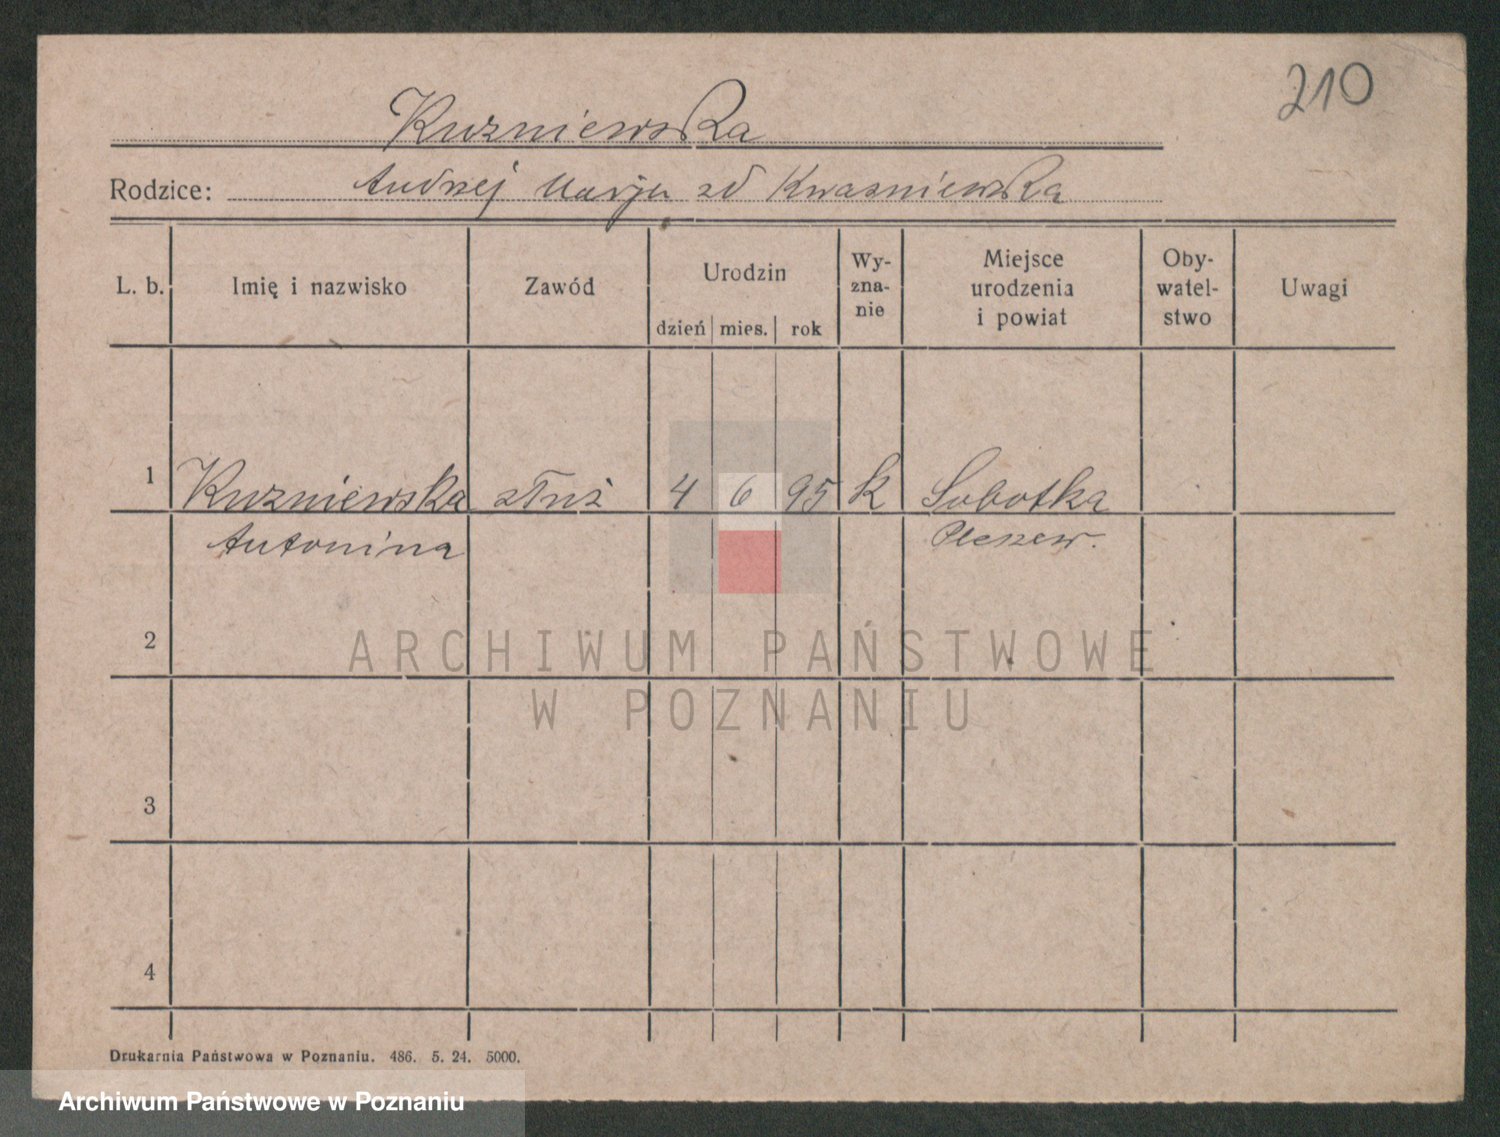 210
Kuzniewska
Rodzice: Andrzej Marja zd Kwasniewska
L. b. Imię i nazwisko Zawód Urodzin dzień mies. rok Wy-zna-nie Miejsce urodzenia i powiat Oby-watel-stwo Uwagi
1 Kuzniewska służ 4 6 95 k Sobotka
Antonina Pleszew.
2
ARCHIWUM PAŃSTWOWE
W POZNANIU
3
4
Drukarnia Państwowa w Poznaniu. 486. 5. 24. 5000.
Archiwum Państwowe w Poznaniu